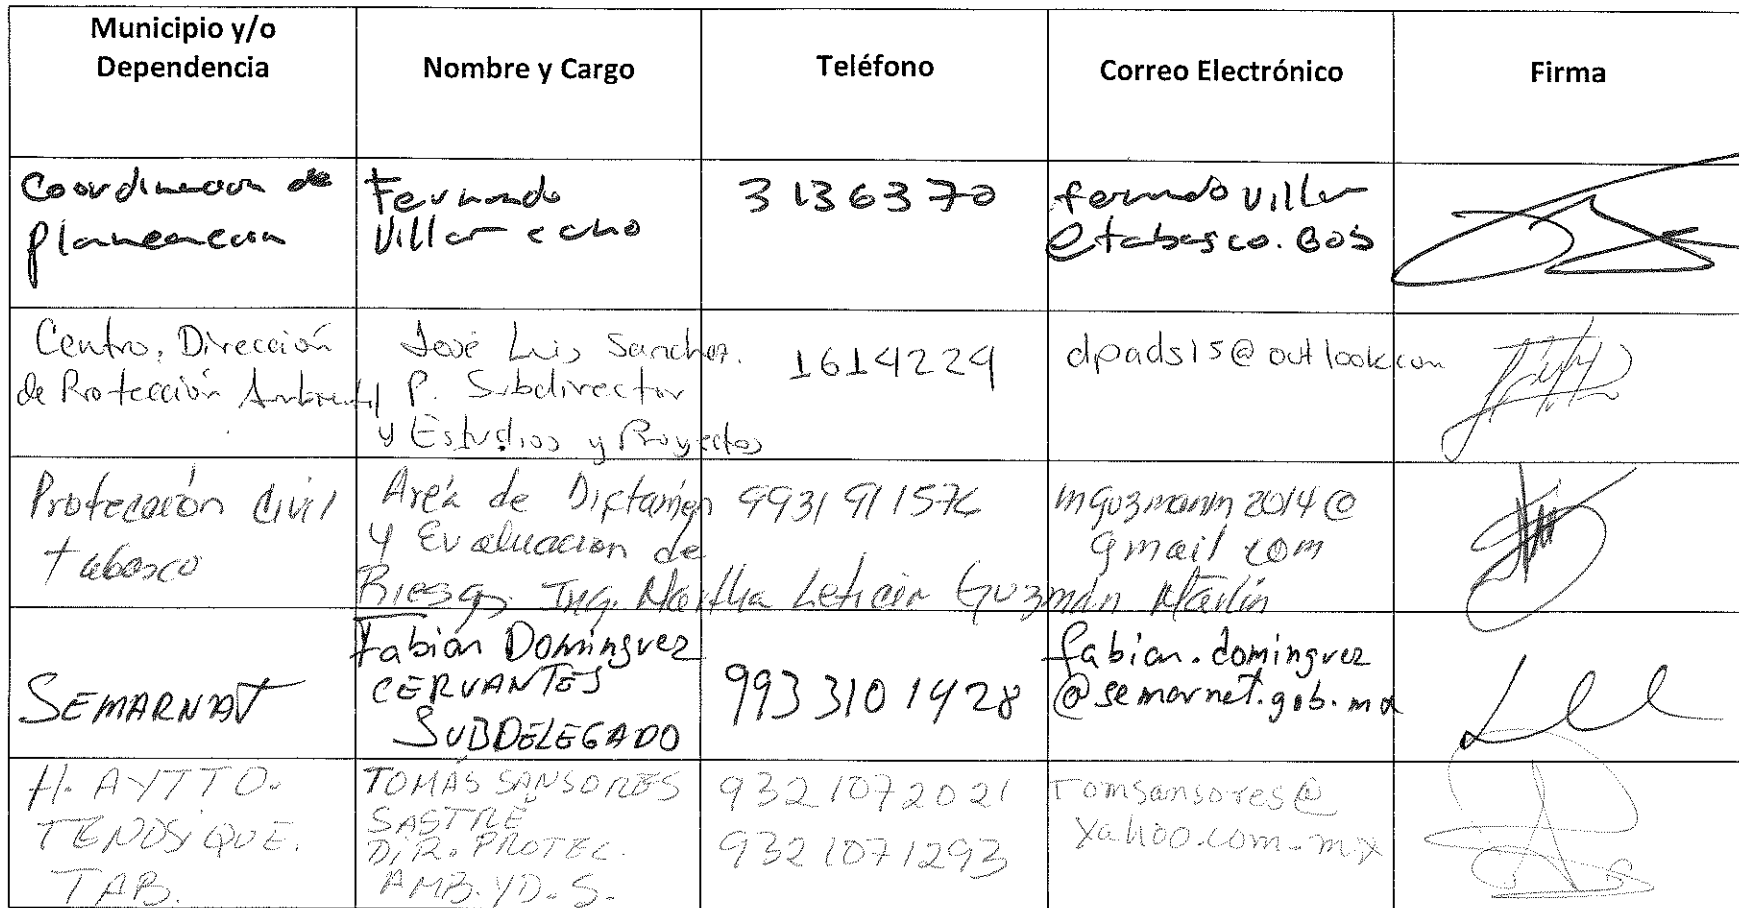 Municipio y/o
Dependencia
Nombre y Cargo
Teléfono
Correo Electrónico
Firma
Coordinacion de
planeacion
Fernando
Villar
3136370
fernando villar
@tabasco.Gob
Centro, Dirección
de Protección Ambiental
José Luis Sanchez.
P. Subdirector
y Estudios y Proyectos
1614224
dpads15@outlook.com
Protección Civil
tabasco
Area de Dictamen
y Evaluacion de
Riesgos Ing. Martha Leticia Guzmán Marlín
9931 911576
mguzmanm2014@
gmail com
SEMARNAT
Fabian Dominguez
CERVANTES
SUBDELEGADO
993 310 1428
fabian.dominguez
@semarnat.gob.mx
H. AYTTO.
TENOSIQUE.
TAB.
TOMÁS SANSORES
SASTRÉ
DIR. PROTEC.
AMB. Y D. S.
932 1072021
932 1071293
Tomsansores@
Yahoo.com.mx